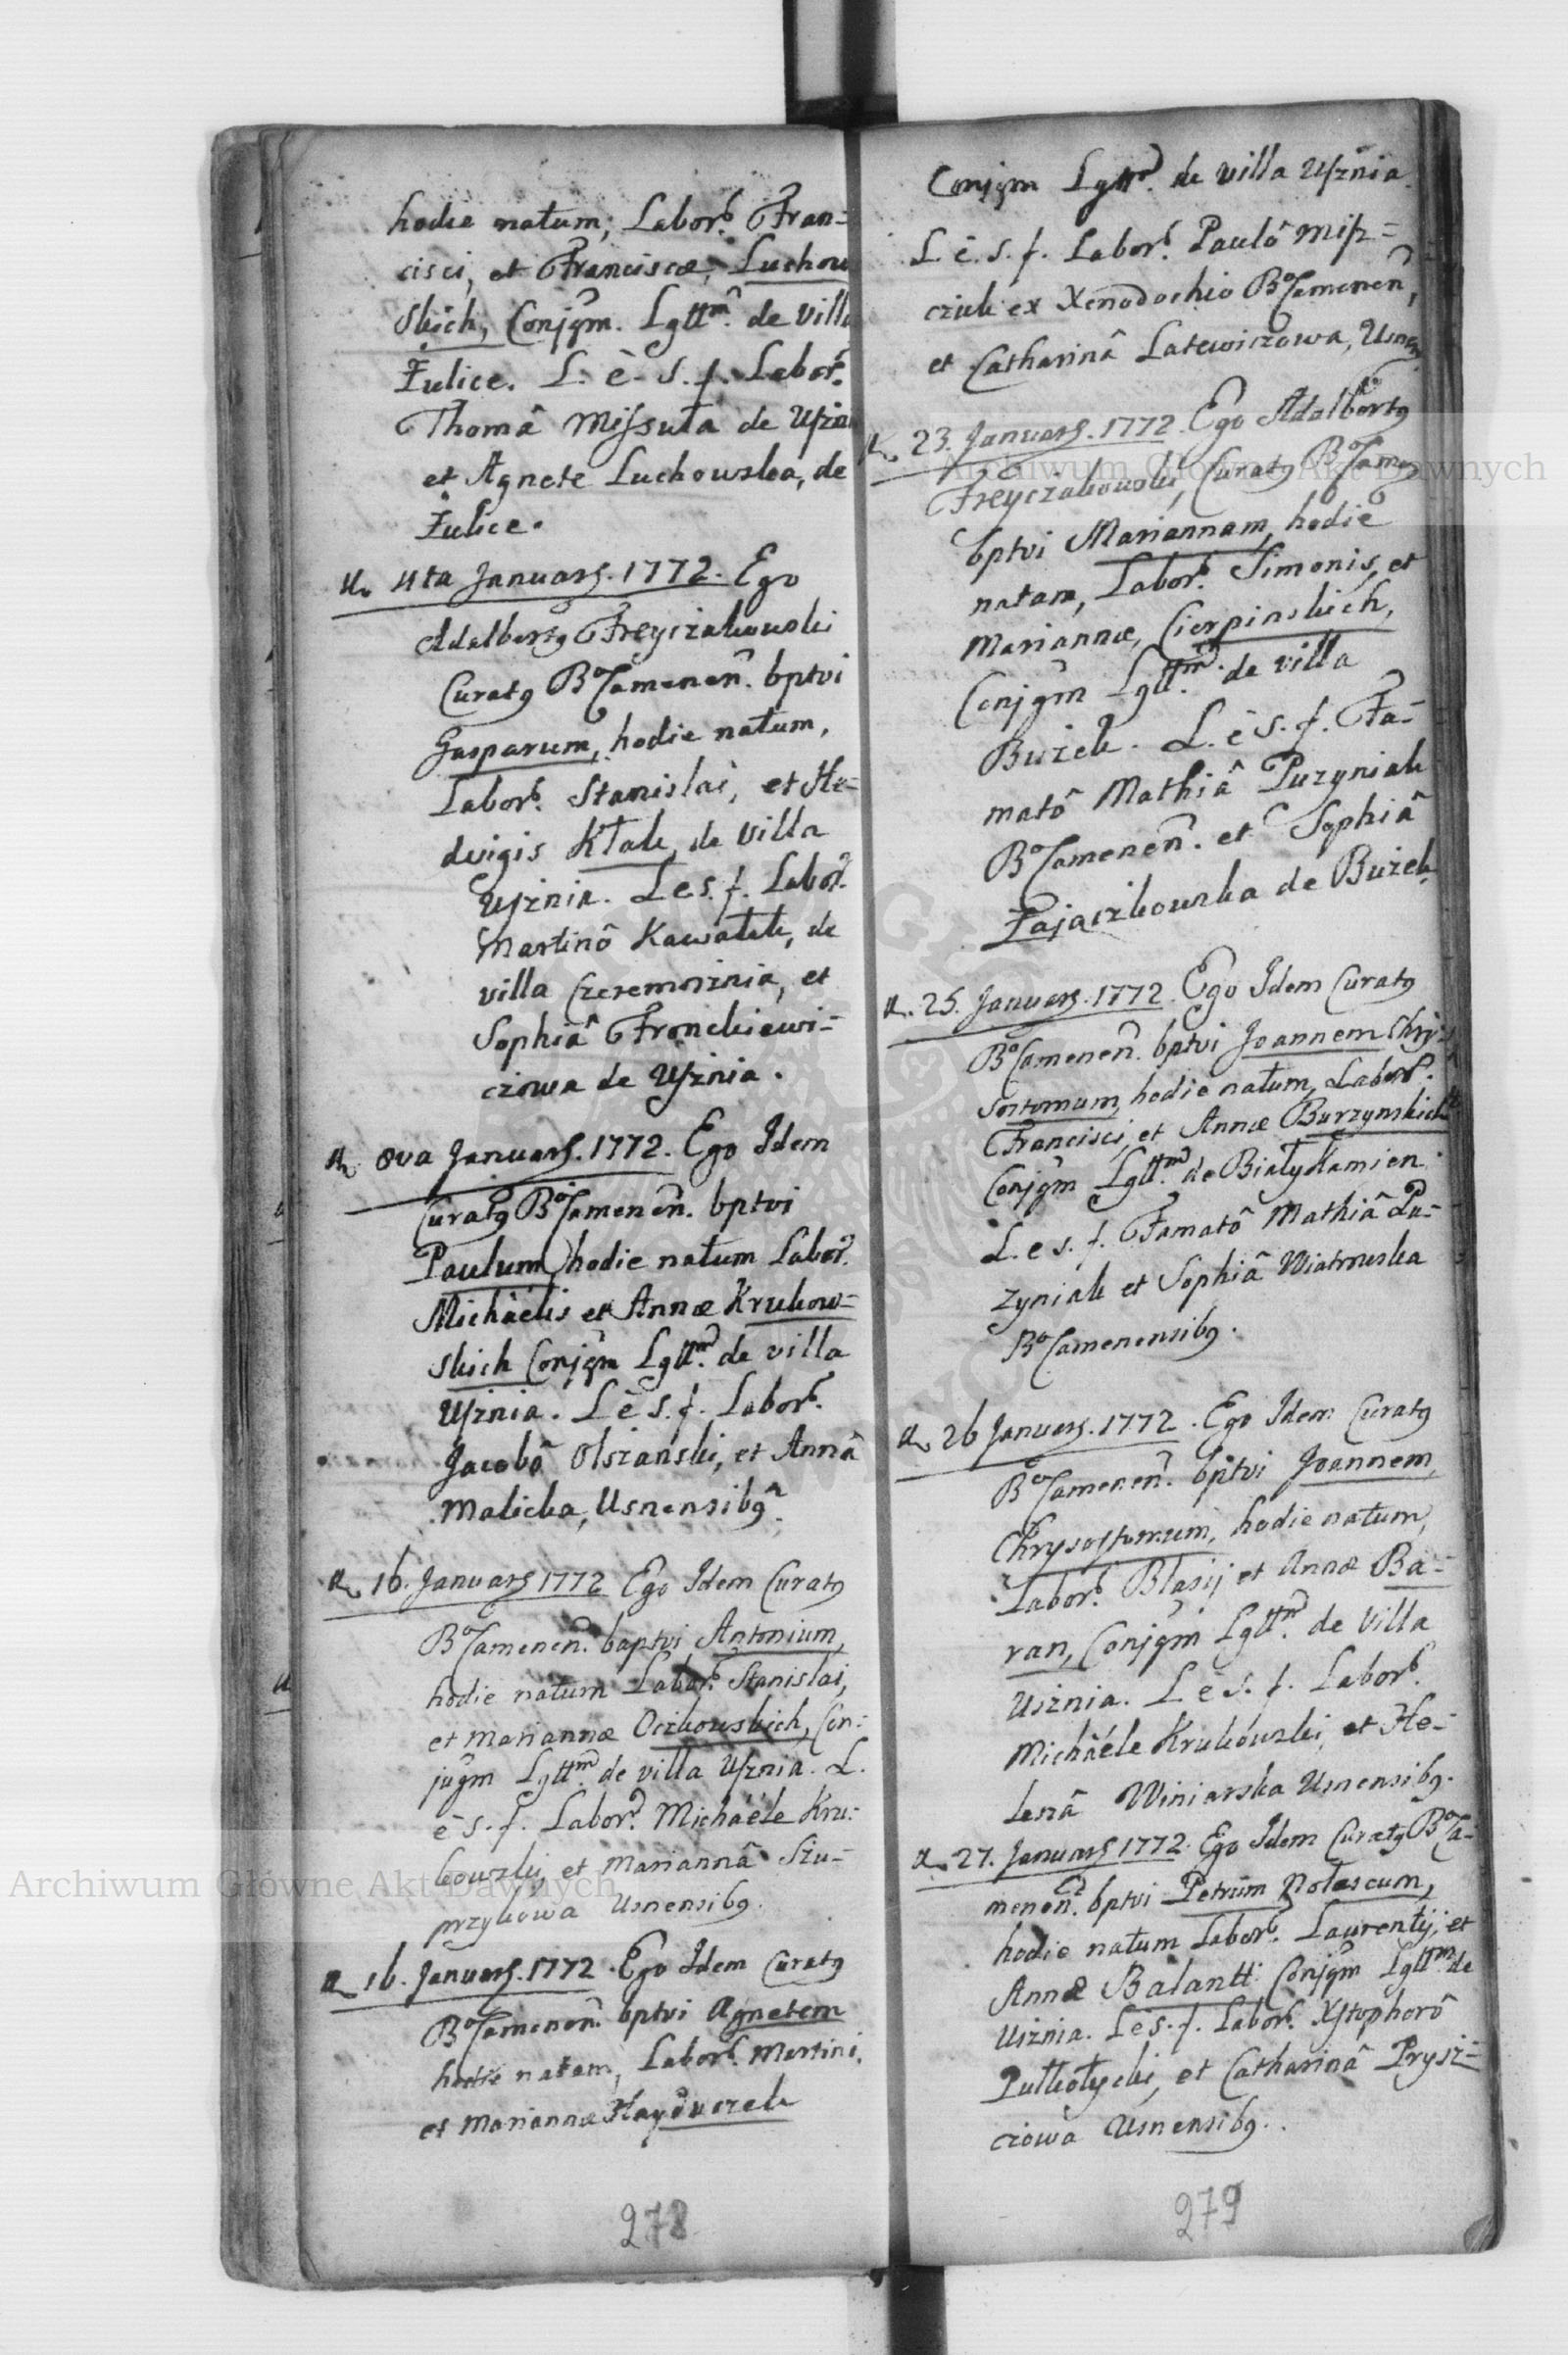 hodie natum, Labor. Fran=
cisci, et Franciscæ, Luchow
skich, Conjgm. Lgttm. de villa
Żulice. L. è. S. f. Labor.
Thomâ Missuta de Uszni
et Agnete Luchowska, de
Żulice.
4ta Januarÿ. 1772. Ego
Adalbertg Freyczakowski
Curatg Bo Camenen. bptvi
Gasparum, hodie natum,
Labor. Stanislai, et He=
dvigis Kłak, de villa
Usznia. L e s. f. Labor.
Martinô Kawałek, de
villa Czeremosznia, et
Sophiâ Fronckiewi=
czowa de Usznia.
8va Januarÿ. 1772. Ego Idem
Curatg Bo Camenen. bptvi
Paulum, hodie natum Labor.
Michaelis et Annæ Krukow=
skich Conjgm Lgttm. de villa
Usznia. L è S. f. Labor.
Jacobô Olszanski, et Annâ
Malicka, Usnensibg.
16. Januarÿ 1772 Ego Idem Curatg
Bo Camenen. baptvi Antonium,
hodie natum Labor. Stanislai,
et Mariannæ Oczkowskich, Con=
jugm Lgttm. de villa Usznia. L.
è S. f. Labor. Michaële Kru=
kowski, et Mariannâ Szu=
przykowa Usnensibg.
16. Januarÿ. 1772. Ego Idem Curatg
Bo Camenen. bptvi Agnetem
hodie natam, Labor. Martini,
et Mariannæ Hayduczek
278
Conjgm Lgttm. de villa Usznia.
L è. S. f. Labor. Paulô Misz=
cziuk ex Xenodochio Bo Camenen,
et Catharinâ Latewiczowa,
23. Januarÿ. 1772. Ego Adalbertg
Freyczakowski, Curatg Bo Camen
bptvi Mariannam, hodie
natam, Labor. Simonis, et
Mariannæ, Cierpinskich,
Conjgm Lgttm. de villa
Bużek. L. è S. f. Fa=
matô Mathiâ Puzyniak
Bo Camenen. et Sophiâ
Zajączkowska de Bużek
25. Januarÿ. 1772. Ego Idem Curatg
Bo Camenen. bptvi Joannem Chry=
sostomum, hodie natum, Labor.
Francisci, et Annæ Burzynskich
Conjgm Lgttm. de Białykamien
L. e s. f. Famatô Mathiâ Pu=
zyniak et Sophiâ Wiatrowska
Bo Camenensibg.
26 Januarÿ. 1772. Ego Idem Curatg
Bo Camenen. bptvi Joannem,
Chrysostomum, hodie natum,
Labor. Blasij et Annæ Ba=
ran, Conjgm Lgttm. de villa
Usznia. L è S. f. Labor.
Michaële Krukowski, et He=
lenâ Winiarska Usnensibg.
27. Januarÿ 1772. Ego Idem Curatg Bo Ca=
menen. bptvi Petrum Nolascum,
hodie natum Labor. Laurentij, et
Annæ Balantt Conjgm Lgttm. de
Usznia. L è s. f. Labor. Xstophorô
Putkołycki, et Catharinâ Prysz=
czowa Usnensibg.
279
Archiwum Główne Akt Dawnych
Archiwum Główne Akt Dawnych